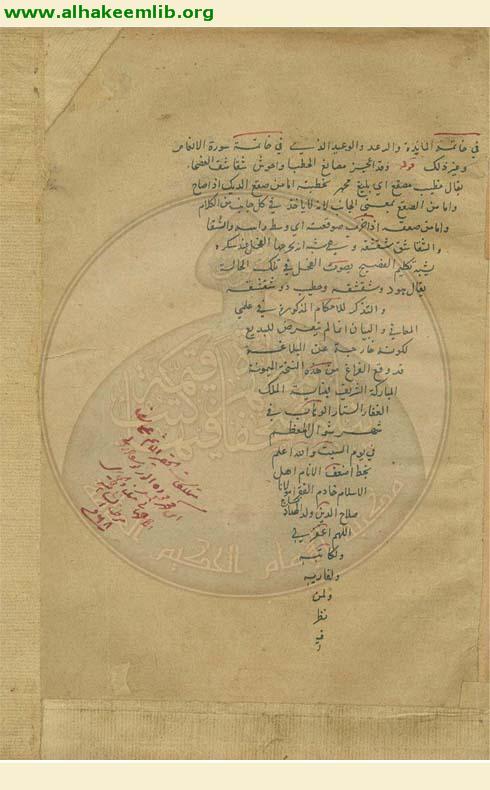 www.alhakeemlib.org
في خاتمة المايدة والرعد والوعيد الذي في خاتمة سورة الانعام
وغير ذلك قوله وقد اعجز مصاقع الخطباء واخرس شقاشق الفصحاء
يقال خطيب مصقع اي بليغ مجهر بخطبته امامن صقع الديك اذا صاح
وامامن الصقع بمعنى الجانب لانه ياخذ في كل جانب من الكلام
وامامن صعقته اذا ضرب صوقعته اي وسط راسه والشقا
والشقاشق شقشقة وهي شبه يخرجها الفحل عند سكره
يشبه تكلم الفصيح بصوت الفحل في تلك الحالة
يقال وشقشقه وخطيب ذو شقشقة
والتذكر للاحكام المذكورة في علمي
المعاني والبيان انما لم يتعرض للبديع
لكونه خارجة عن البلاغة
قد وقع الفراغ من هذه النسخة الميمونة
المباركة الشريف بعناية الملك
الغفار الستار الوهاب في
شهر شوال المعظم
في يوم السبت والله اعلم
بخط اضعف الانام اهل
الاسلام خادم الفقرا مولانا
صلاح الدين ولد
اللهم اغفر لي
ولكاتبه
ولقاريه
ولمن
نظر
فيه